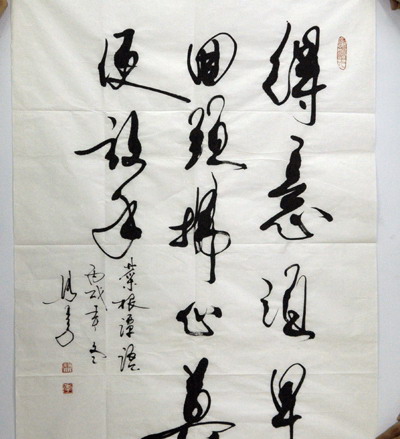 得意須早
回頭拂心莫
便放手
菜根譚語
丙戌年冬